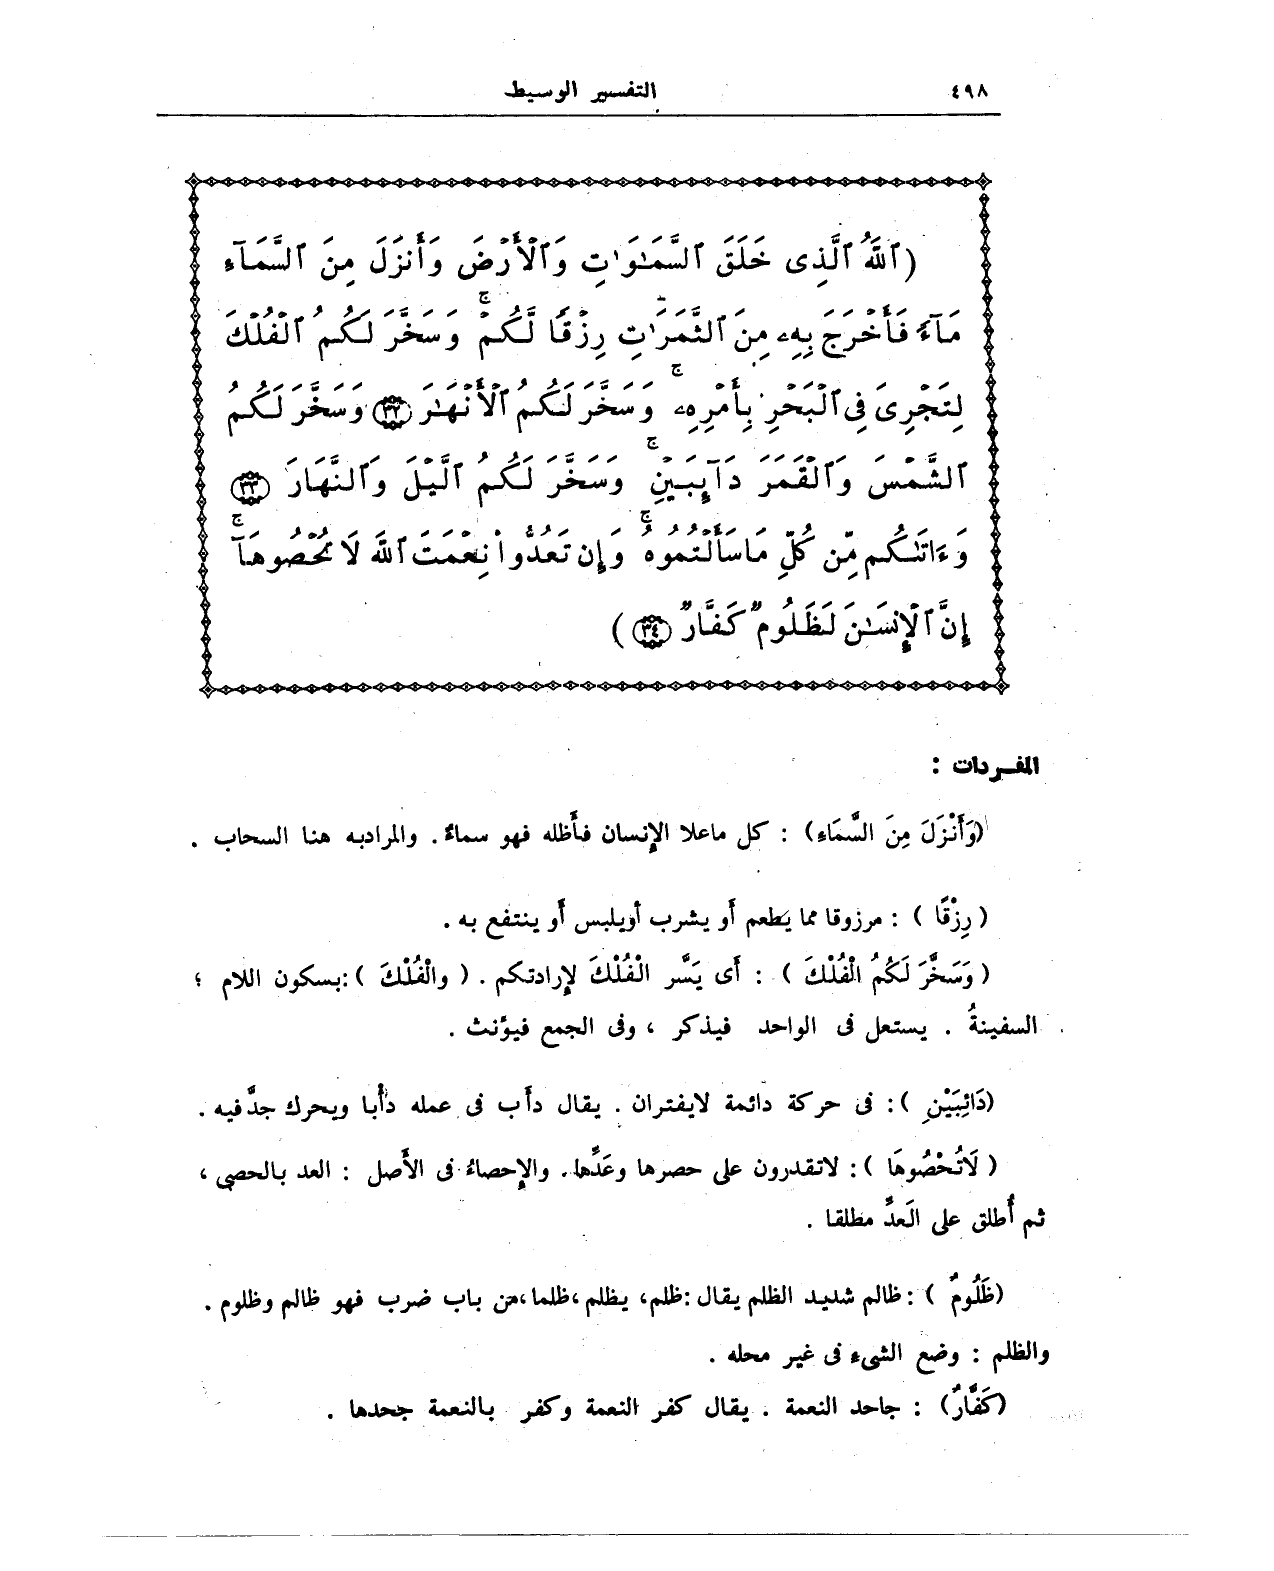 ٤٩٨
التفسير الوسيط
(ٱللَّهُ ٱلَّذِى خَلَقَ ٱلسَّمَٰوَٰتِ وَٱلْأَرْضَ وَأَنزَلَ مِنَ ٱلسَّمَآءِ
مَآءً فَأَخْرَجَ بِهِۦ مِنَ ٱلثَّمَرَٰتِ رِزْقًا لَّكُمْ ۚ وَسَخَّرَ لَكُمُ ٱلْفُلْكَ
لِتَجْرِىَ فِى ٱلْبَحْرِ بِأَمْرِهِۦ ۚ وَسَخَّرَ لَكُمُ ٱلْأَنْهَٰرَ ﴿٣٢﴾ وَسَخَّرَ لَكُمُ
ٱلشَّمْسَ وَٱلْقَمَرَ دَآئِبَيْنِ ۚ وَسَخَّرَ لَكُمُ ٱلَّيْلَ وَٱلنَّهَارَ ﴿٣٣﴾
وَءَاتَىٰكُم مِّن كُلِّ مَا سَأَلْتُمُوهُ ۚ وَإِن تَعُدُّوا۟ نِعْمَتَ ٱللَّهِ لَا تُحْصُوهَآ ۚ
إِنَّ ٱلْإِنسَٰنَ لَظَلُومٌ كَفَّارٌ ﴿٣٤﴾ )
المفـردات :
(وَأَنْزَلَ مِنَ السَّمَاءِ) : كل ماعلا الإنسان فأظله فهو سماءٌ. والمرادبه هنا السحاب .
( رِزْقًا ) : مرزوقا مما يطعم أو يشرب أويلبس أو ينتفع به .
( وَسَخَّرَ لَكُمُ الْفُلْكَ ) : أى يَسَّر الْفُلْكَ لإرادتكم . ( والْفُلْكَ ):بسكون اللام ؛
السفينةُ . يستعل فى الواحد فيذكر ، وفى الجمع فيؤنث .
(دَائِبَيْنِ ): فى حركة دائمة لايفتران . يقال دأب فى عمله دأبا ويحرك جدَّفيه .
( لَاتُحْصُوهَا ): لاتقدرون على حصرها وعَدِّها. والإحصاءُ فى الأصل : العد بالحصى ،
ثم أُطلق على العَدِّ مطلقا .
(ظَلُومٌ ) : ظالم شديد الظلم يقال :ظلم، يظلم ،ظلما،من باب ضرب فهو ظالم وظلوم .
والظلم : وضع الشىء فى غير محله .
(كَفَّارٌ) : جاحد النعمة . يقال كفر النعمة وكفر بالنعمة جحدها .